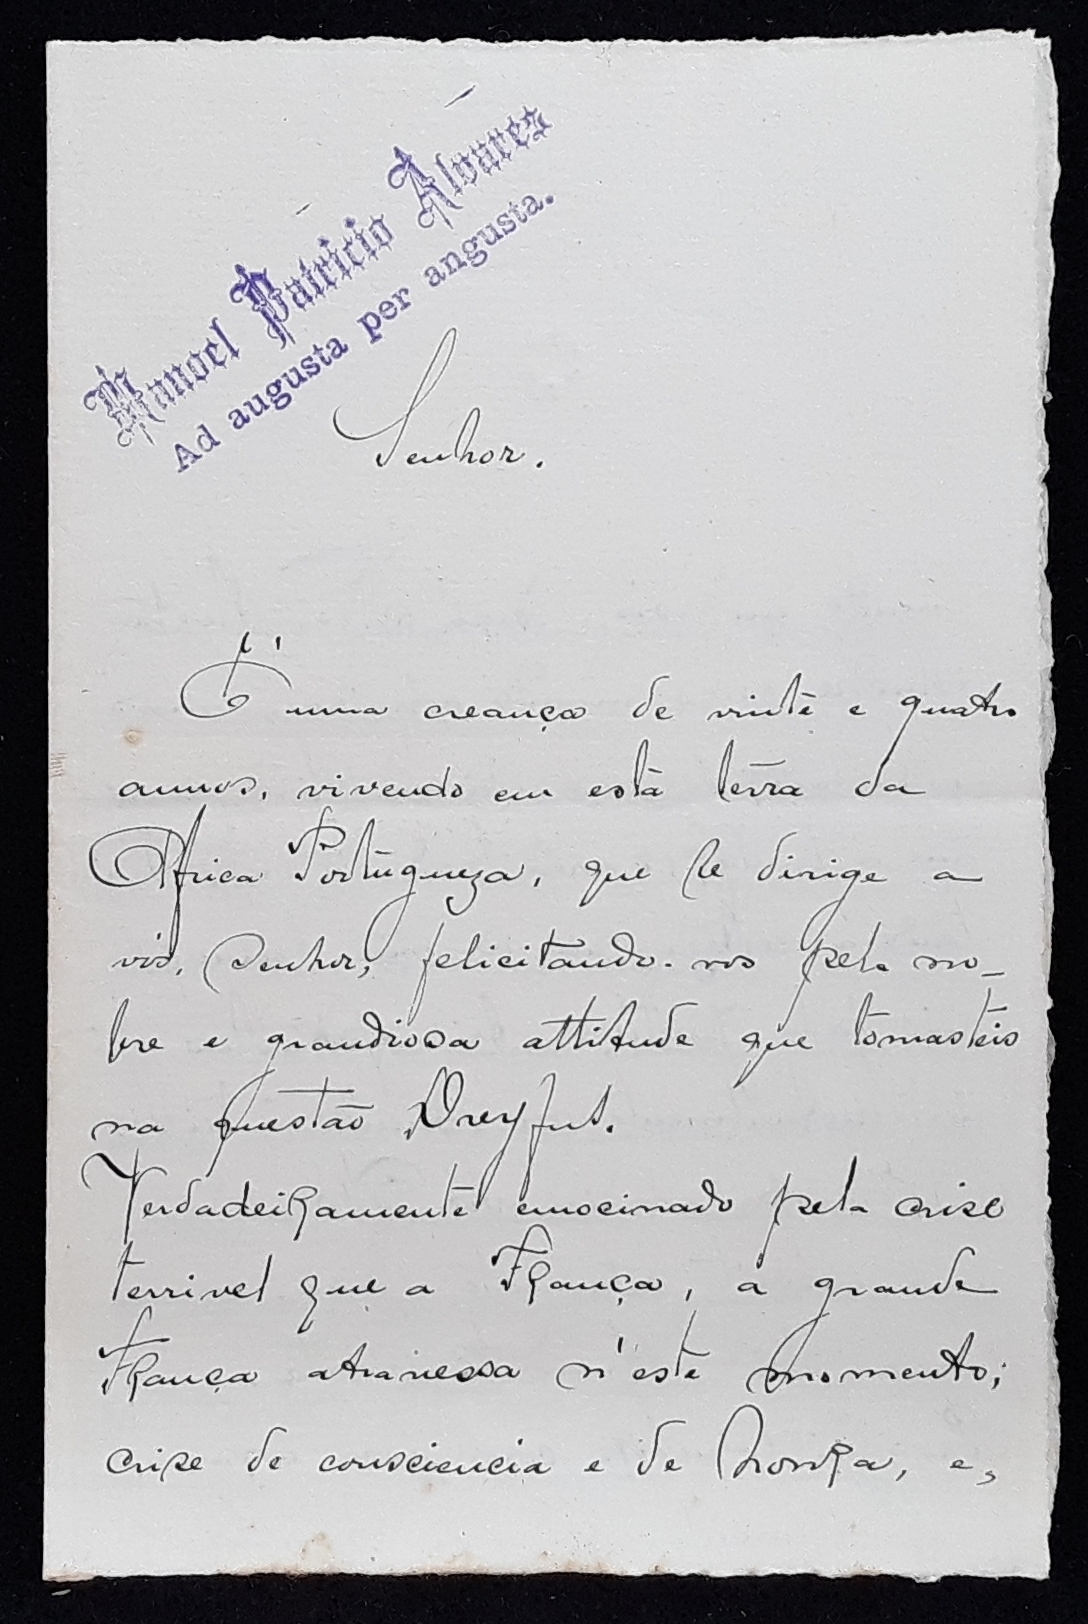 Manoel Patricio Alvares
Ad augusta per angusta.
Senhor.
É uma creança de vinte e quatro
annos, vivendo em esta terra da
Africa Portugueza, que se dirige a
vós, Senhor, felicitando-vos pela no-
bre e grandiosa attitude que tomasteis
na questão Dreyfus.
Verdadeiramente emocinado pela crise
terrivel que a França, a grande
França atravessa n'este momento;
crise de consciencia e de honra, e,